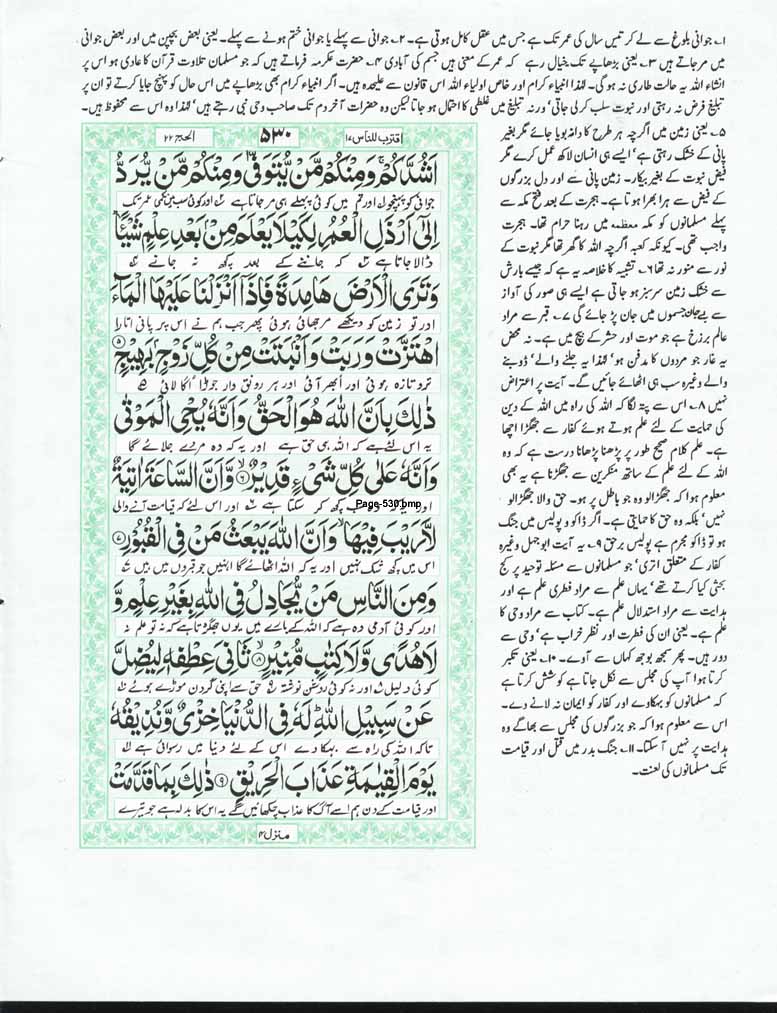 ۱۔ جوانی بلوغ سے لے کر تیس سال کی عمر تک ہے جس میں عقل کامل ہوتی ہے۔ ۲۔ جوانی سے پہلے یا جوانی ختم ہونے سے پہلے۔ یعنی بعض بچپن میں اور بعض جوانی
میں مرجاتے ہیں ۳۔ یعنی بڑھاپے تک۔ خیال رہے کہ عمر کے معنی ہیں جسم کی آبادی ۴۔ حضرت عکرمہ فرماتے ہیں کہ جو مسلمان تلاوت قرآن کا عادی ہو اس پر
انشاء اللہ یہ حالت طاری نہ ہو گی۔ لہذا انبیاء کرام اور خاص اولیاء اللہ اس قانون سے علیحدہ ہیں۔ اگر انبیاء کرام بھی بڑھاپے میں اس حال کو پہنچ جایا کرتے تو ان پر
تبلیغ فرض نہ رہتی اور نبوت سلب کر لی جاتی‘ ورنہ تبلیغ میں غلطی کا احتمال ہو جاتا لیکن وہ حضرات آخر دم تک صاحب وحی نبی رہتے ہیں‘ لہذا وہ اس سے محفوظ ہیں۔
۵۔ یعنی زمین میں اگرچہ ہر طرح کا دانہ بویا جائے مگر بغیر
پانی کے خشک رہتی ہے‘ ایسے ہی انسان لاکھ عمل کرے مگر
فیض نبوت کے بغیر بیکار۔ زمین پانی سے اور دل بزرگوں
کے فیض سے ہرا بھرا ہوتا ہے۔ ہجرت کے بعد فتح مکہ سے
پہلے مسلمانوں کو مکہ معظمہ میں رہنا حرام تھا۔ ہجرت
واجب تھی۔ کیونکہ کعبہ اگرچہ اللہ کا گھر تھا مگر نبوت کے
نور سے منور نہ تھا ۶۔ تشبیہ کا خلاصہ یہ ہے کہ جیسے بارش
سے خشک زمین سرسبز ہو جاتی ہے ایسے ہی صور کی آواز
سے بےجان جسموں میں جان پڑ جائے گی ۷۔ قبر سے مراد
عالم برزخ ہے جو موت اور حشر کے بیچ میں ہے۔ نہ محض
یہ غار جو مردوں کا مدفن ہو‘ لہذا یہ جلنے والے‘ ڈوبنے
والے وغیرہ سب ہی اٹھائے جائیں گے۔ آیت پر اعتراض
نہیں ۸۔ اس سے پتہ لگا کہ اللہ کی راہ میں اللہ کے دین
کی حمایت کے لئے علم ہوتے ہوئے کفار سے جھگڑا اچھا
ہے۔ علم کلام صحیح طور پر پڑھنا پڑھانا درست ہے کہ وہ
اللہ کے لئے علم کے ساتھ منکرین سے جھگڑنا ہے یہ بھی
معلوم ہوا کہ جھگڑالو وہ جو باطل پر ہو۔ حق والا جھگڑالو
نہیں‘ بلکہ وہ حق کا حمایتی ہے۔ اگر ڈاکو و پولیس میں جنگ
ہو تو ڈاکو مجرم ہے پولیس برحق ۹۔ یہ آیت ابوجہل وغیرہ
کفار کے متعلق اتری‘ جو مسلمانوں سے مسئلہ توحید پر کج
بحثی کیا کرتے تھے‘ یہاں علم سے مراد فطری علم ہے اور
ہدایت سے مراد استدلال علم ہے۔ کتاب سے مراد وحی کا
علم ہے۔ یعنی ان کی فطرت اور نظر خراب ہے‘ وحی سے
دور ہیں۔ پھر سمجھ بوجھ کہاں سے آوے۔ ۱۰۔ یعنی تکبر
کرتا ہوا آپ کی مجلس سے نکل جاتا ہے کوشش کرتا ہے
کہ مسلمانوں کو بہکاوے اور کفار کو ایمان نہ لانے دے۔
اس سے معلوم ہوا کہ جو بزرگوں کی مجلس سے بھاگے وہ
ہدایت پر نہیں آ سکتا۔ ۱۱۔ جنگ بدر میں قتل اور قیامت
تک مسلمانوں کی لعنت۔
اقترب للناس ۱۷ ۵۳۰ الحج ۲۲
اَشُدَّكُمْ ۚ وَمِنْكُمْ مَّنْ يُّتَوَفّٰى وَمِنْكُمْ مَّنْ يُّرَدُّ
جوانی کو پہنچو اور تم میں کوئی پہلے ہی مر جاتا ہے اور کوئی سب میں نکمی عمر تک
اِلٰۤى اَرْذَلِ الْعُمُرِ لِكَيْلَا يَعْلَمَ مِنْۢ بَعْدِ عِلْمٍ شَيْـًٔا ؕ
ڈالا جاتا ہے کہ جاننے کے بعد کچھ نہ جانے
وَتَرَى الْاَرْضَ هَامِدَةً فَاِذَاۤ اَنْزَلْنَا عَلَيْهَا الْمَآءَ
اور تو زمین کو دیکھے مرجھائی ہوئی پھر جب ہم نے اس پر پانی اتارا
اهْتَزَّتْ وَرَبَتْ وَاَنْۢبَتَتْ مِنْ كُلِّ زَوْجٍۭ بَهِيْجٍ ۵
تروتازہ ہوئی اور ابھر آئی اور ہر رونق دار جوڑا اگا لائی
ذٰلِكَ بِاَنَّ اللّٰهَ هُوَ الْحَقُّ وَاَنَّهٗ يُحْيِ الْمَوْتٰى
یہ اس لئے ہے کہ اللہ ہی حق ہے اور یہ کہ وہ مردے جلائے گا
وَاَنَّهٗ عَلٰى كُلِّ شَيْءٍ قَدِيْرٌ ۶ وَّاَنَّ السَّاعَةَ اٰتِيَةٌ
سب کچھ کر سکتا ہے اور اس لئے کہ قیامت آنے والی
Page-530.bmp
لَّا رَيْبَ فِيْهَا ۙ وَاَنَّ اللّٰهَ يَبْعَثُ مَنْ فِي الْقُبُوْرِ ۷
اس میں کچھ شک نہیں اور یہ کہ اللہ اٹھائے گا انہیں جو قبروں میں ہیں
وَمِنَ النَّاسِ مَنْ يُّجَادِلُ فِي اللّٰهِ بِغَيْرِ عِلْمٍ وَّ
اور کوئی آدمی وہ ہے کہ اللہ کے بارے میں یوں جھگڑتا ہے کہ نہ تو علم نہ
لَا هُدًى وَّلَا كِتٰبٍ مُّنِيْرٍ ۸ ثَانِيَ عِطْفِهٖ لِيُضِلَّ
کوئی دلیل اور نہ کوئی روشن نوشتہ حق سے اپنی گردن موڑے ہوئے
عَنْ سَبِيْلِ اللّٰهِ ؕ لَهٗ فِي الدُّنْيَا خِزْيٌ وَّنُذِيْقُهٗ
تاکہ اللہ کی راہ سے بہکا دے اس کے لئے دنیا میں رسوائی ہے
يَوْمَ الْقِيٰمَةِ عَذَابَ الْحَرِيْقِ ۹ ذٰلِكَ بِمَا قَدَّمَتْ
اور قیامت کے دن ہم اسے آگ کا عذاب چکھائیں گے یہ اس کا بدلہ ہے جو تیرے
منزل ۴